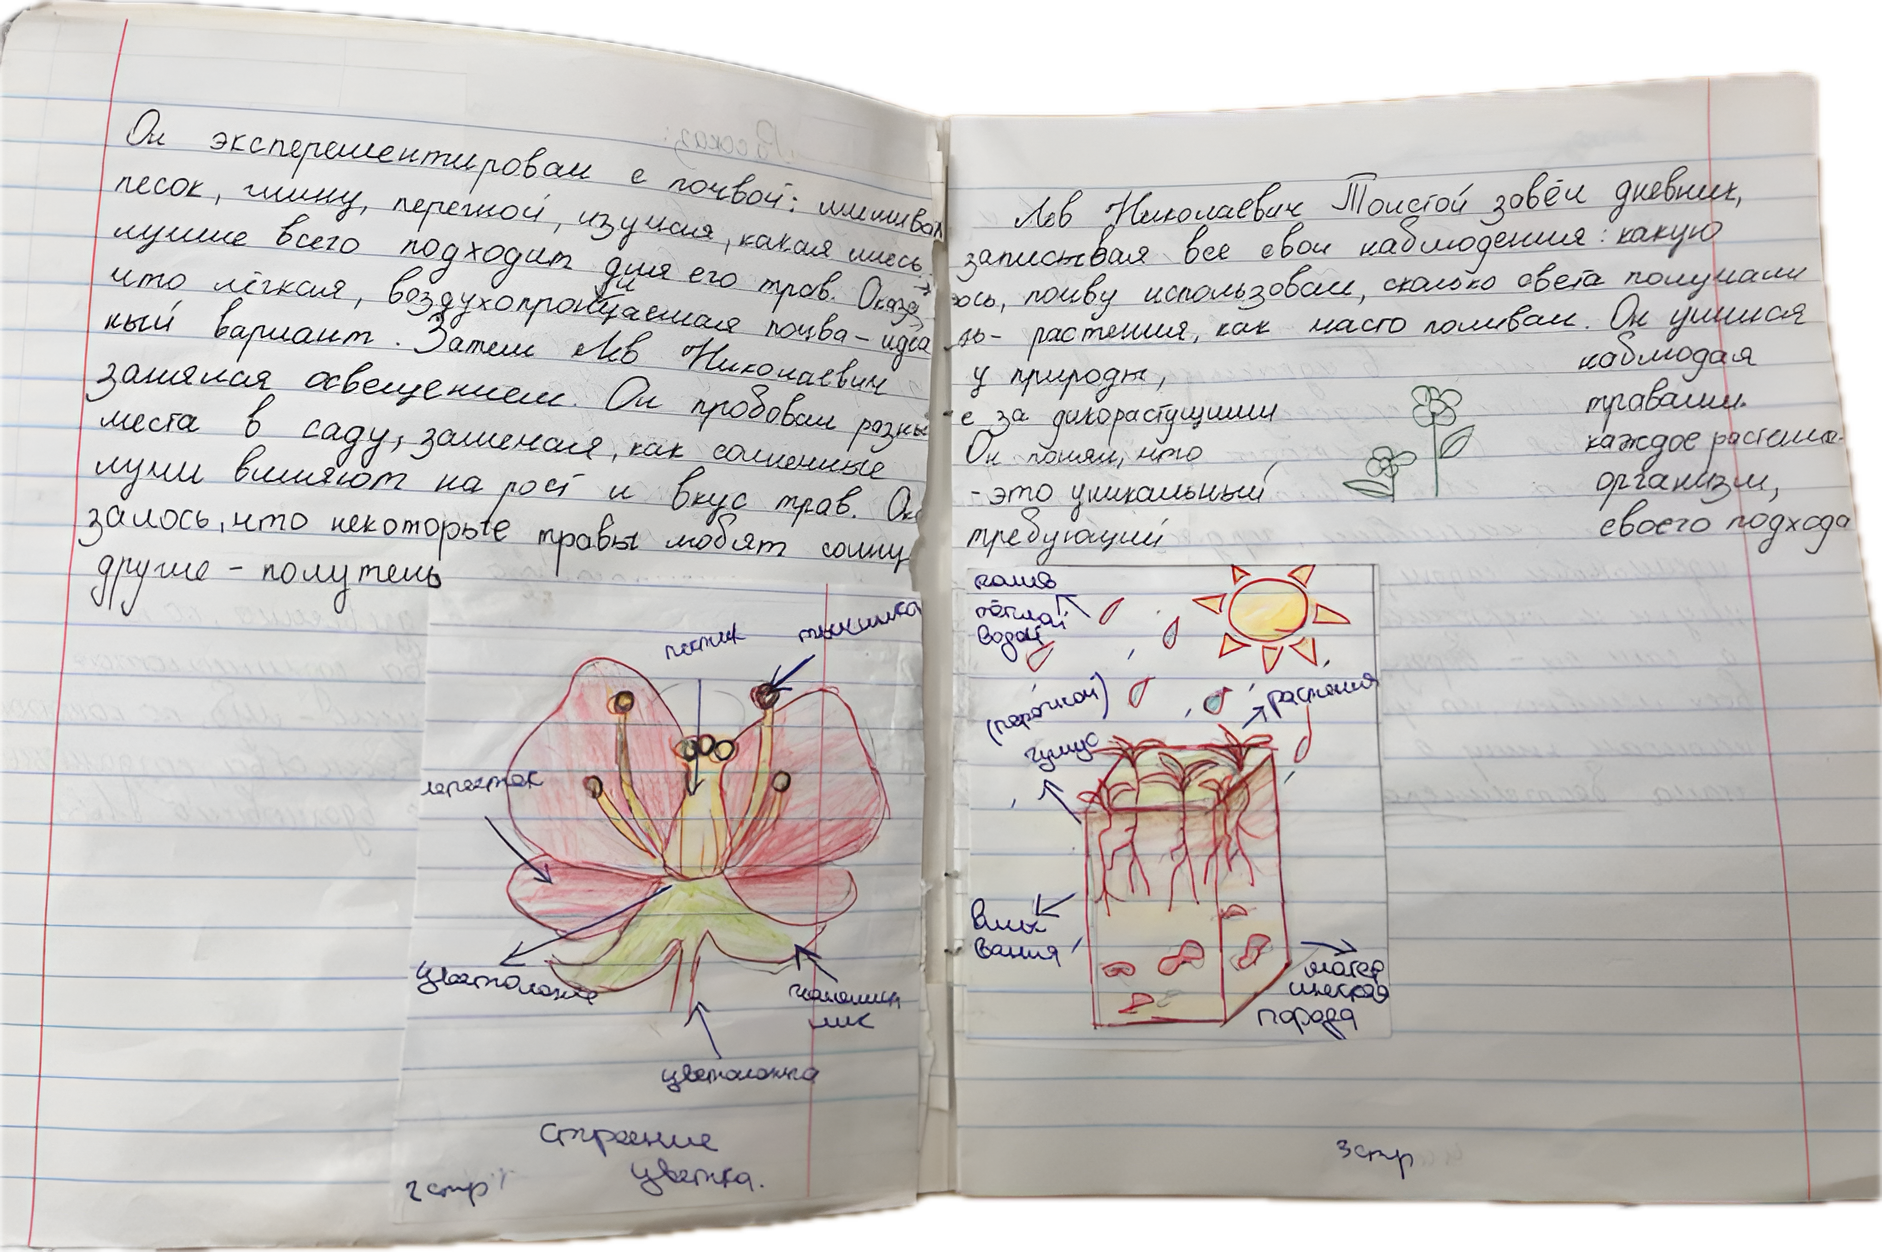 Он эксперементировал с почвой: мешивал
песок, глину, перегной, изучая, какая смесь
лучше всего подходит для его трав. Оказа
что лёгкая, воздухопроницаемая почва - идеа
ный вариант. Затем Лев Николаевич
занялся освещением. Он пробовал разны
места в саду, замечая, как солнечные
лучи влияют на рост и вкус трав. Ока
залось, что некоторые травы любят солнц
другие - полутень
пестик
тычинка
лепесток
цветоложе
чашелис
тик
цветоложка
Строение
цветка.
2 стр
Лев Николаевич Толстой завёл дневник,
записывая все свои наблюдения: какую
ось, почву использовал, сколько света получали
ль- растения, как часто поливал. Он учился
у природы, наблюдая
е за дикорастущими травами.
Он понял, что каждое растени-
-это уникальный организм,
требующий своего подхода
полив
тёплой
водой
(перегной)
гумус
растения
вмы
вания
матер
инская
порода
3 стр